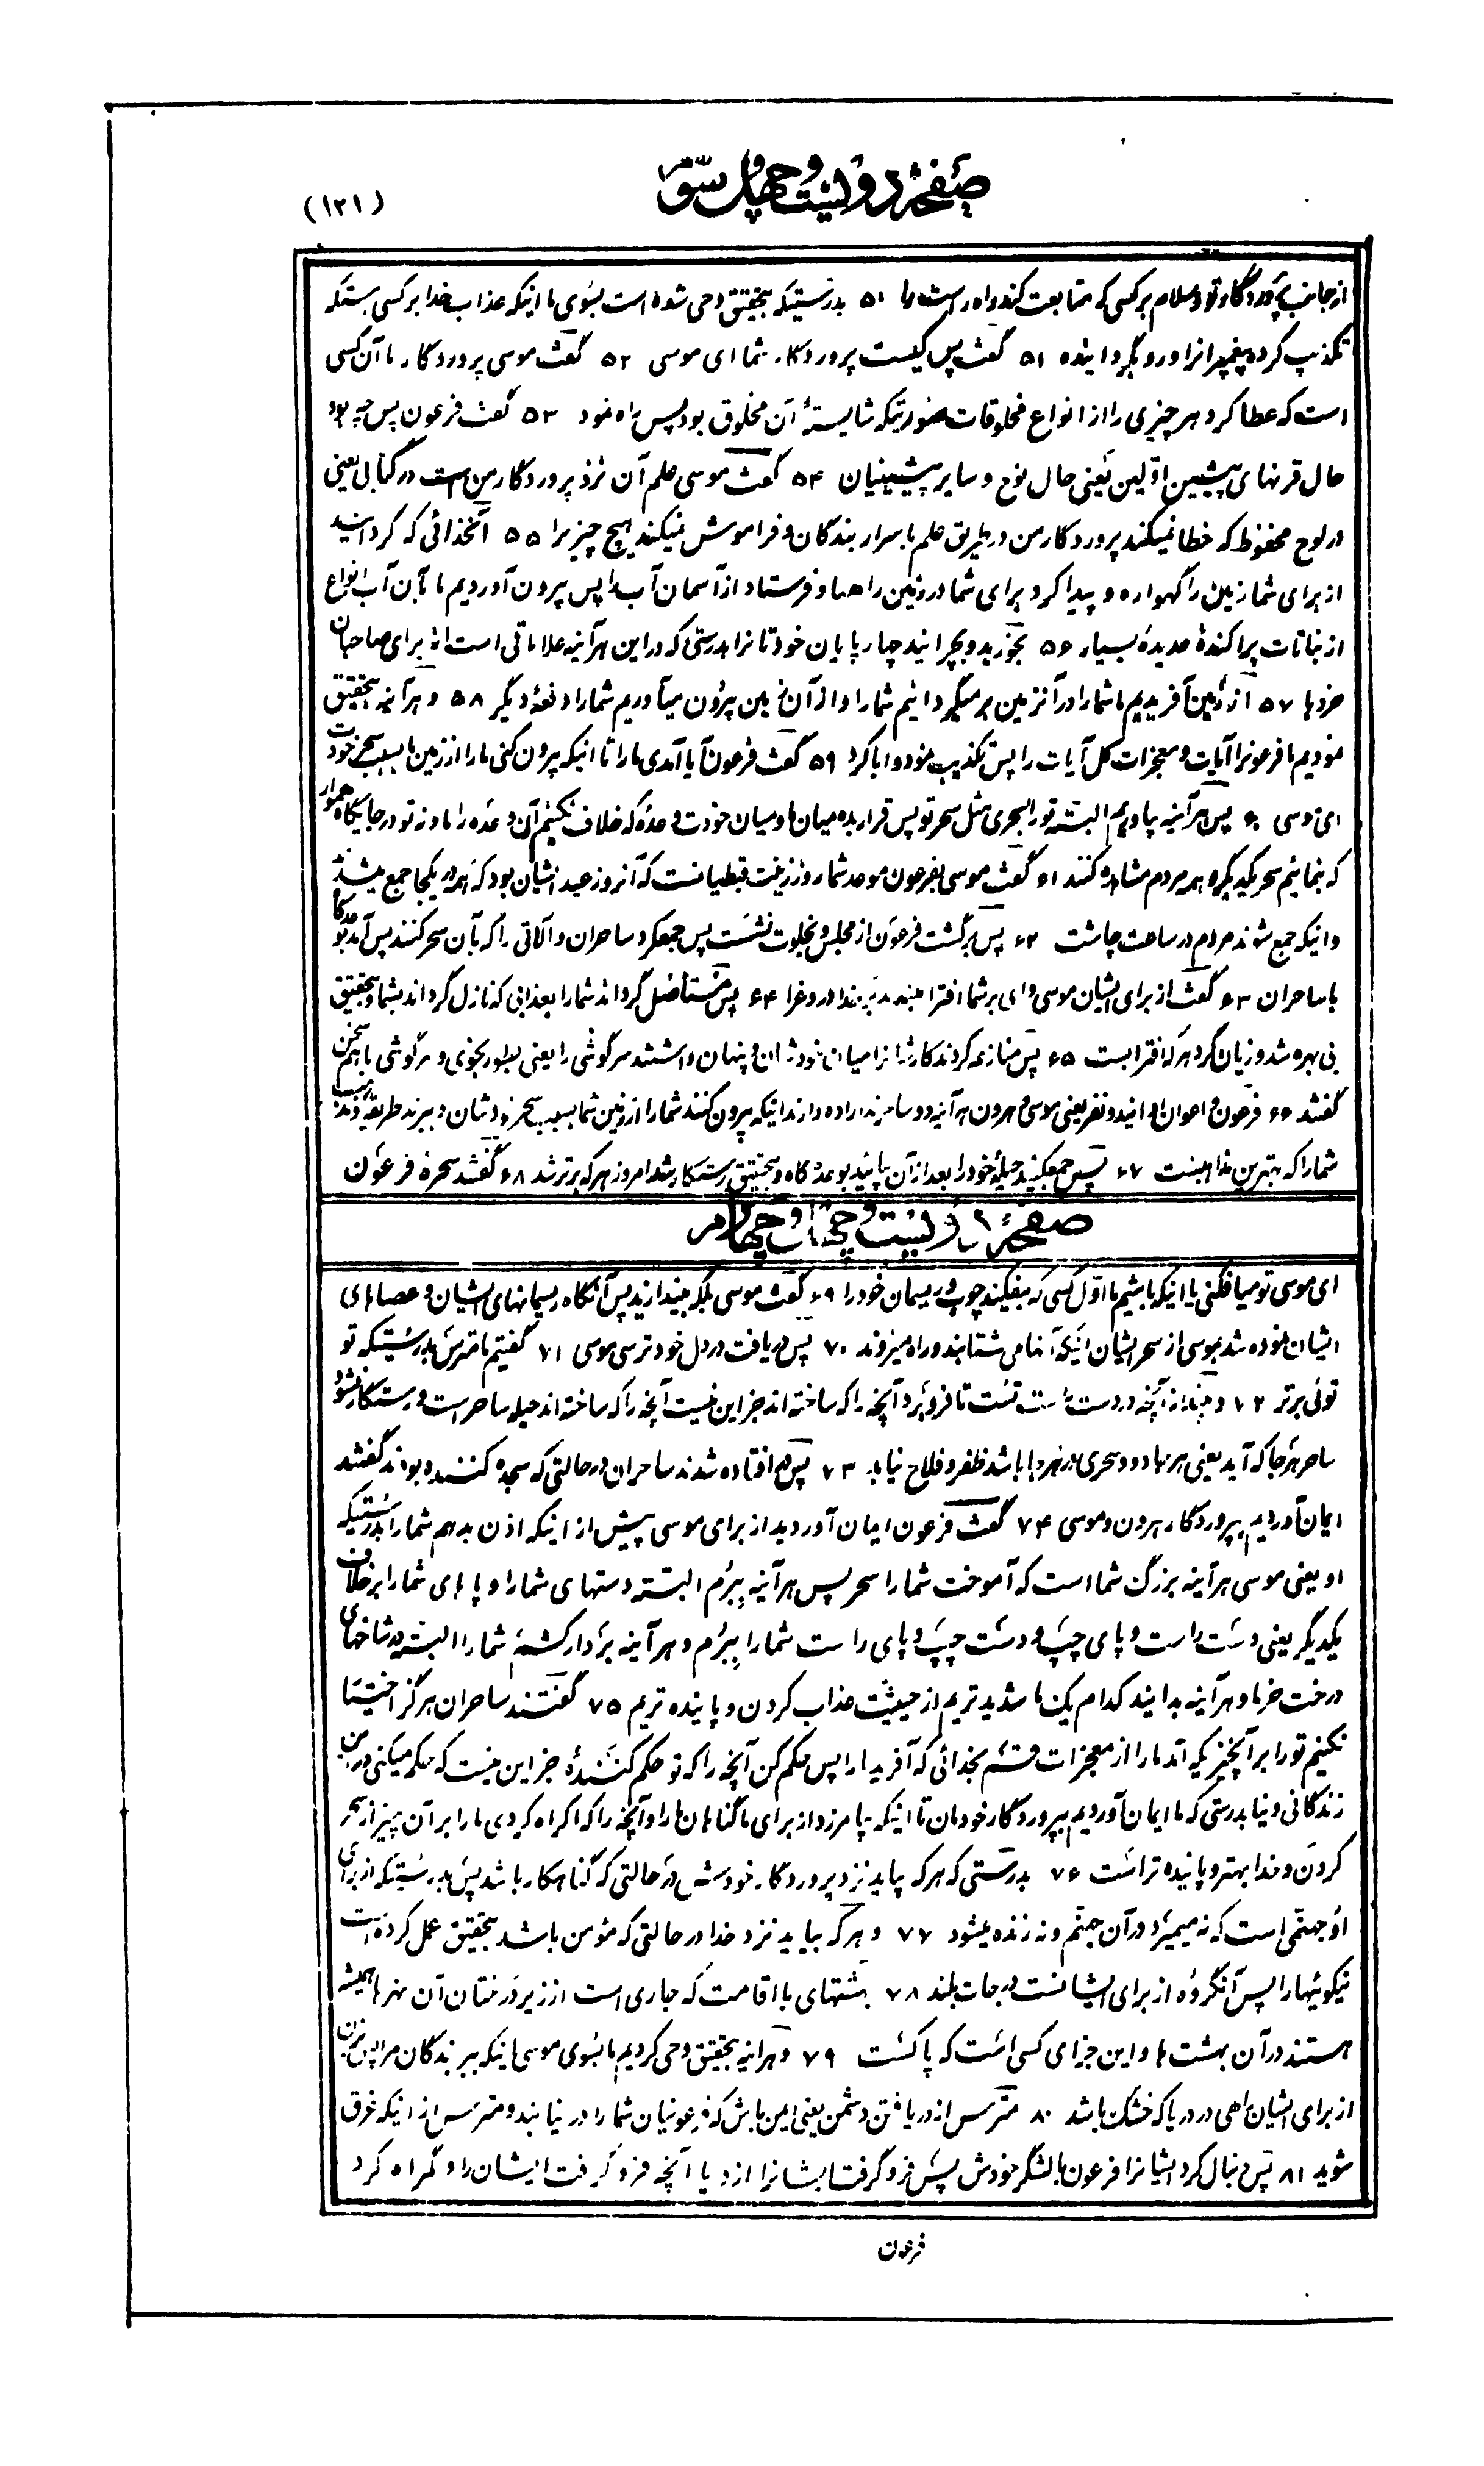 صفحه دویست و چهل و سوم
(۱۲۱)
از جانب پروردگار تو و سلام بر کسی که متابعت کند راه راست را ۵۰ بدرستیکه بتحقیق وحی شده است بسوی ما اینکه عذاب خدا بر کسی هستکه
تکذیب کرده پیغمبرانرا و رو بگردانیده ۵۱ گفت پس کیست پروردگار شما ای موسی ۵۲ گفت موسی پروردگار ما آن کسی
است که عطا کرد هر چیزی را از انواع مخلوقات صورتیکه شایستهٔ آن مخلوق بود پس راه نمود ۵۳ گفت فرعون پس چه بود
حال قرنهای پیشین اوّلین یعنی حال نوح و سایر پیشینیان ۵۴ گفت موسی علم آن نزد پروردگار من است در کتابی یعنی
در لوح محفوظ که خطا نمیکند پروردگار من در طریق علم باسرار بندگان و فراموش نمیکند هیچ چیز را ۵۵ آنخدائی که گردانید
از برای شما زمین را گهواره و پیدا کرد برای شما در زمین راهها و فرستاد از آسمان آب را پس بیرون آوردیم ما بآن آب انواع
از نباتات پراکندهٔ عدیدهٔ بسیار ۵۶ بخورید و بچرانید چهارپایان خودتانرا بدرستی که در این هرآینه علاماتی است از برای صاحبان
خردها ۵۷ از زمین آفریدیم ما شما را در آنزمین برمیگردانیم شما را و از آن زمین بیرون میآوریم شما را دفعهٔ دیگر ۵۸ و هرآینه بتحقیق
نمودیم ما فرعونرا آیات و معجزات کل آیات را پس تکذیب نمود و ابا کرد ۵۹ گفت فرعون آیا آمدی ما را تا اینکه بیرون کنی ما را از زمین ما بسبب سحر خودت
ای موسی ۶۰ پس هرآینه بیاوریم البته تو را بسحری مثل سحر تو پس قرار بده میان ما و میان خودت وعدهٔ که خلاف نکنیم آن وعده را ما و نه تو در جایگاه هموار
که بنمائیم سحر یکدیگر و همه مردم مشاهده کنند ۶۱ گفت موسی بفرعون موعد شما روز زینت قبطیانست که آنروز عید ایشان بود که همه در یکجا جمع میشدند
و اینکه جمع شوند مردم در ساعت چاشت ۶۲ پس برگشت فرعون از مجلس و بخلوت نشست پس جمعکرد ساحران و آلاتی را که بآن سحر کنند پس آمد بوعدگاه
با ساحران ۶۳ گفت از برای ایشان موسی وای بر شما افترا مبندید بخدا دروغرا ۶۴ پس مستأصل گرداند شما را بعذابی که نازل گرداند بشما و بتحقیق
بی بهره شد و زیان گرد هر که افترا بست ۶۵ پس منازعه کردند کارشانرا میان خودشان و پنهان داشتند سرگوشی را یعنی بطور نجوی و سرگوشی با هم سخن
گفتند ۶۶ فرعون و اعوان او اینند دو نفر یعنی موسی و هرون هرآینه دو ساحرند اراده دارند اینکه بیرون کنند شما را از زمین شما بسبب سحر خودشان و ببرند طریقه و مذهب
شما را که بهترین مذاهبست ۶۷ پس جمعکنید حیلهٔ خود را بعد از آن بیائید بوعده گاه و بتحقیق رستکار شد امروز هر که برتر شد ۶۸ گفتند سحرهٔ فرعون
صفحه دویست و چهل و چهارم
ای موسی تو میافکنی یا اینکه باشیم ما اوّل کسی که بیفکنید چوب و ریسمان خود را ۶۹ گفت موسی بلکه بیندازید پس آنگاه ریسمانهای ایشان و عصاهای
ایشان نموده شد بموسی از سحر ایشان اینکه آنها می شتابند و راه میروند ۷۰ پس دریافت در دل خود ترسی موسی ۷۱ گفتیم ما مترس بدرستیکه تو
توئی برتر ۷۲ و بینداز آنچه در دست راست تست تا فرو برد آنچه را که ساخته اند جز این نیست آنچه را که ساخته اند حیله ساحر است و رستگار نشود
ساحر هر جا که آید یعنی هر جادو و سحری در هر جا باشد ظفر و فلاح نیابد ۷۳ پس افتاده شدند ساحران در حالتی که سجده کننده بودند گفتند
ایمان آوردیم بپروردگار هرون و موسی ۷۴ گفت فرعون ایمان آوردید از برای موسی پیش از اینکه اذن بدهم شما را بدرستیکه
او یعنی موسی هرآینه بزرگ شما است که آموخت شما را سحر پس هرآینه ببُرم البته دستهای شما را و پاهای شما را بر خلاف
یکدیگر یعنی دست راست و پای چپ و دست چپ و پای راست شما را ببُرم و هرآینه بردار کشم شما را البته در شاخهای
درخت خرما و هرآینه بدانید کدام یک ما شدیدتریم از حیثیّت عذاب کردن و پاینده تریم ۷۵ گفتند ساحران هرگز اختیار
نکنیم تو را بر آنچیزیکه آمد ما را از معجزات و قسم بخدائی که آفرید ما را پس حکم کن آنچه را که تو حکم کنندهٔ جز این نیست که حکم میکنی در این
زندگانی دنیا بدرستی که ما ایمان آوردیم بپروردگار خودمان تا اینکه بیامرزد از برای ما گناهان ما را و آنچه را که اکراه کردی ما را بر آن چیز از سحر
کردن و خدا بهتر و پاینده تر است ۷۶ بدرستی که هر که بیاید نزد پروردگار خودش در حالتی که گناهکار باشد پس بدرستیکه از برای
او جهنّمی است که نه میمیرد در آن جهنّم و نه زنده میشود ۷۷ و هر که بیاید نزد خدا در حالتی که مؤمن باشد بتحقیق عمل کرده است
نیکوئیها را پس آنگروه از برای ایشانست درجات بلند ۷۸ بهشتهای با اقامت که جاری است از زیر درختان آن نهرها همیشه
هستند در آن بهشت ها و این جزای کسی است که پاکست ۷۹ و هرآینه بتحقیق وحی کردیم ما بسوی موسی اینکه ببر بندگان مرا پس بزن
از برای ایشان راهی در دریا که خشک باشد ۸۰ مترس از دریافتن دشمن یعنی ایمن باش که فرعونیان شما را در نیابند و مترس از اینکه غرق
شوید ۸۱ پس دنبال کرد ایشانرا فرعون با لشگر خودش پس فرو گرفت ایشانرا از دریا آنچه فرو گرفت ایشان را و گمراه کرد
فرعون